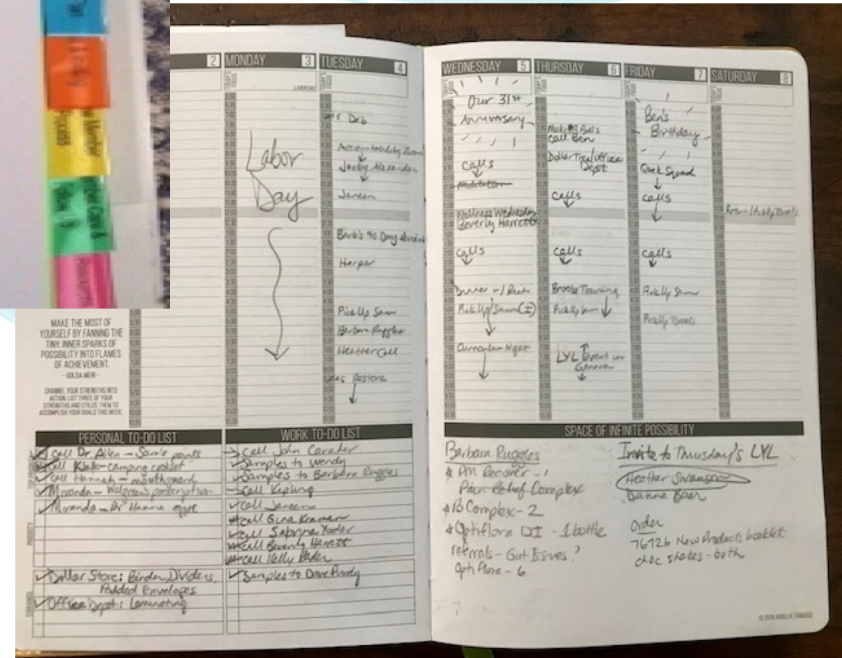 Process
2
MONDAY 3
LABOR DAY
Labor
Day
TUESDAY 4
Deb
Accountability
Jacky Alexander
Janeen
Barb's 90 Day
Harper
Pick Up Sam
Barbara Ruggles
Heather Call
Restore
MAKE THE MOST OF
YOURSELF BY FANNING THE
TINY, INNER SPARKS OF
POSSIBILITY INTO FLAMES
OF ACHIEVEMENT.
- GOLDA MEIR -
CHANNEL YOUR STRENGTHS INTO
ACTION. LIST THREE OF YOUR
STRENGTHS AND UTILIZE THEM TO
ACCOMPLISH YOUR GOALS THIS WEEK.
PERSONAL TO-DO LIST
call Dr. Allen - Sam's points
call - camping
call Hannah - mouthguard
Miranda - Walgreen's
Miranda - Dr Hanna
Dollar Store: Binder, Dividers,
Padded Envelopes
Office Depot: Laminating
WORK TO-DO LIST
call John
Samples to Wendy
Samples to Barbara Ruggles
call Kipling
call Janeen
call Gina Kramer
call Sabrina
call Beverly Harrett
call Kelly
Samples to Dave Purdy
WEDNESDAY 5
Our 31st
Anniversary
calls
Wellness Wednesday
Beverly Harrett
calls
Dinner
Pick Up Sam
Curriculum Night
THURSDAY 6
Call Ben
Dollar Tree/Office
Depot
calls
calls
Brooke Training
Pick Up Sam
LYL Event in
Geneva
FRIDAY 7
Ben's
Birthday
Geek Squad
calls
calls
Pick Up Sam
Pick Up Towels
SATURDAY 8
Return/Pick Up Towels
SPACE OF INFINITE POSSIBILITY
Barbara Ruggles
PM Recover - 1
Pain Relief Complex
B Complex - 2
Optiflora DI - 1 bottle
referrals - Gut Issues?
Optiflora - 6
Invite to Thursday's LYL
Heather Swanson
Danna Baer
Order
76726 New Products booklet
choc shakes - both